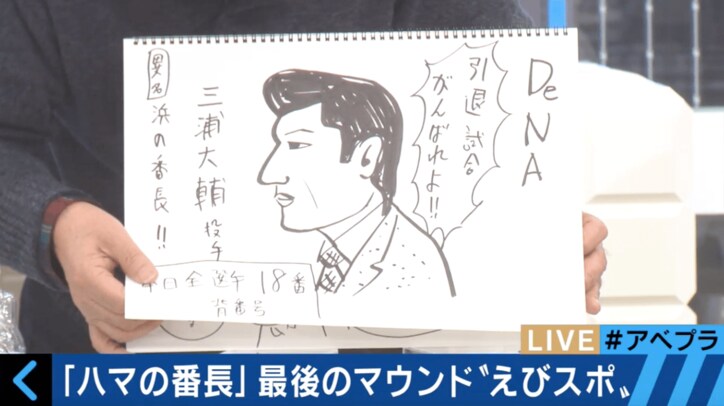 DeNA
引退試合
がんばれよ!!
三浦大輔投手
異名
浜の番長!!
本日全選手18番
背番号
LIVE
#アベプラ
「ハマの番長」最後のマウンド〝えびスポ〟